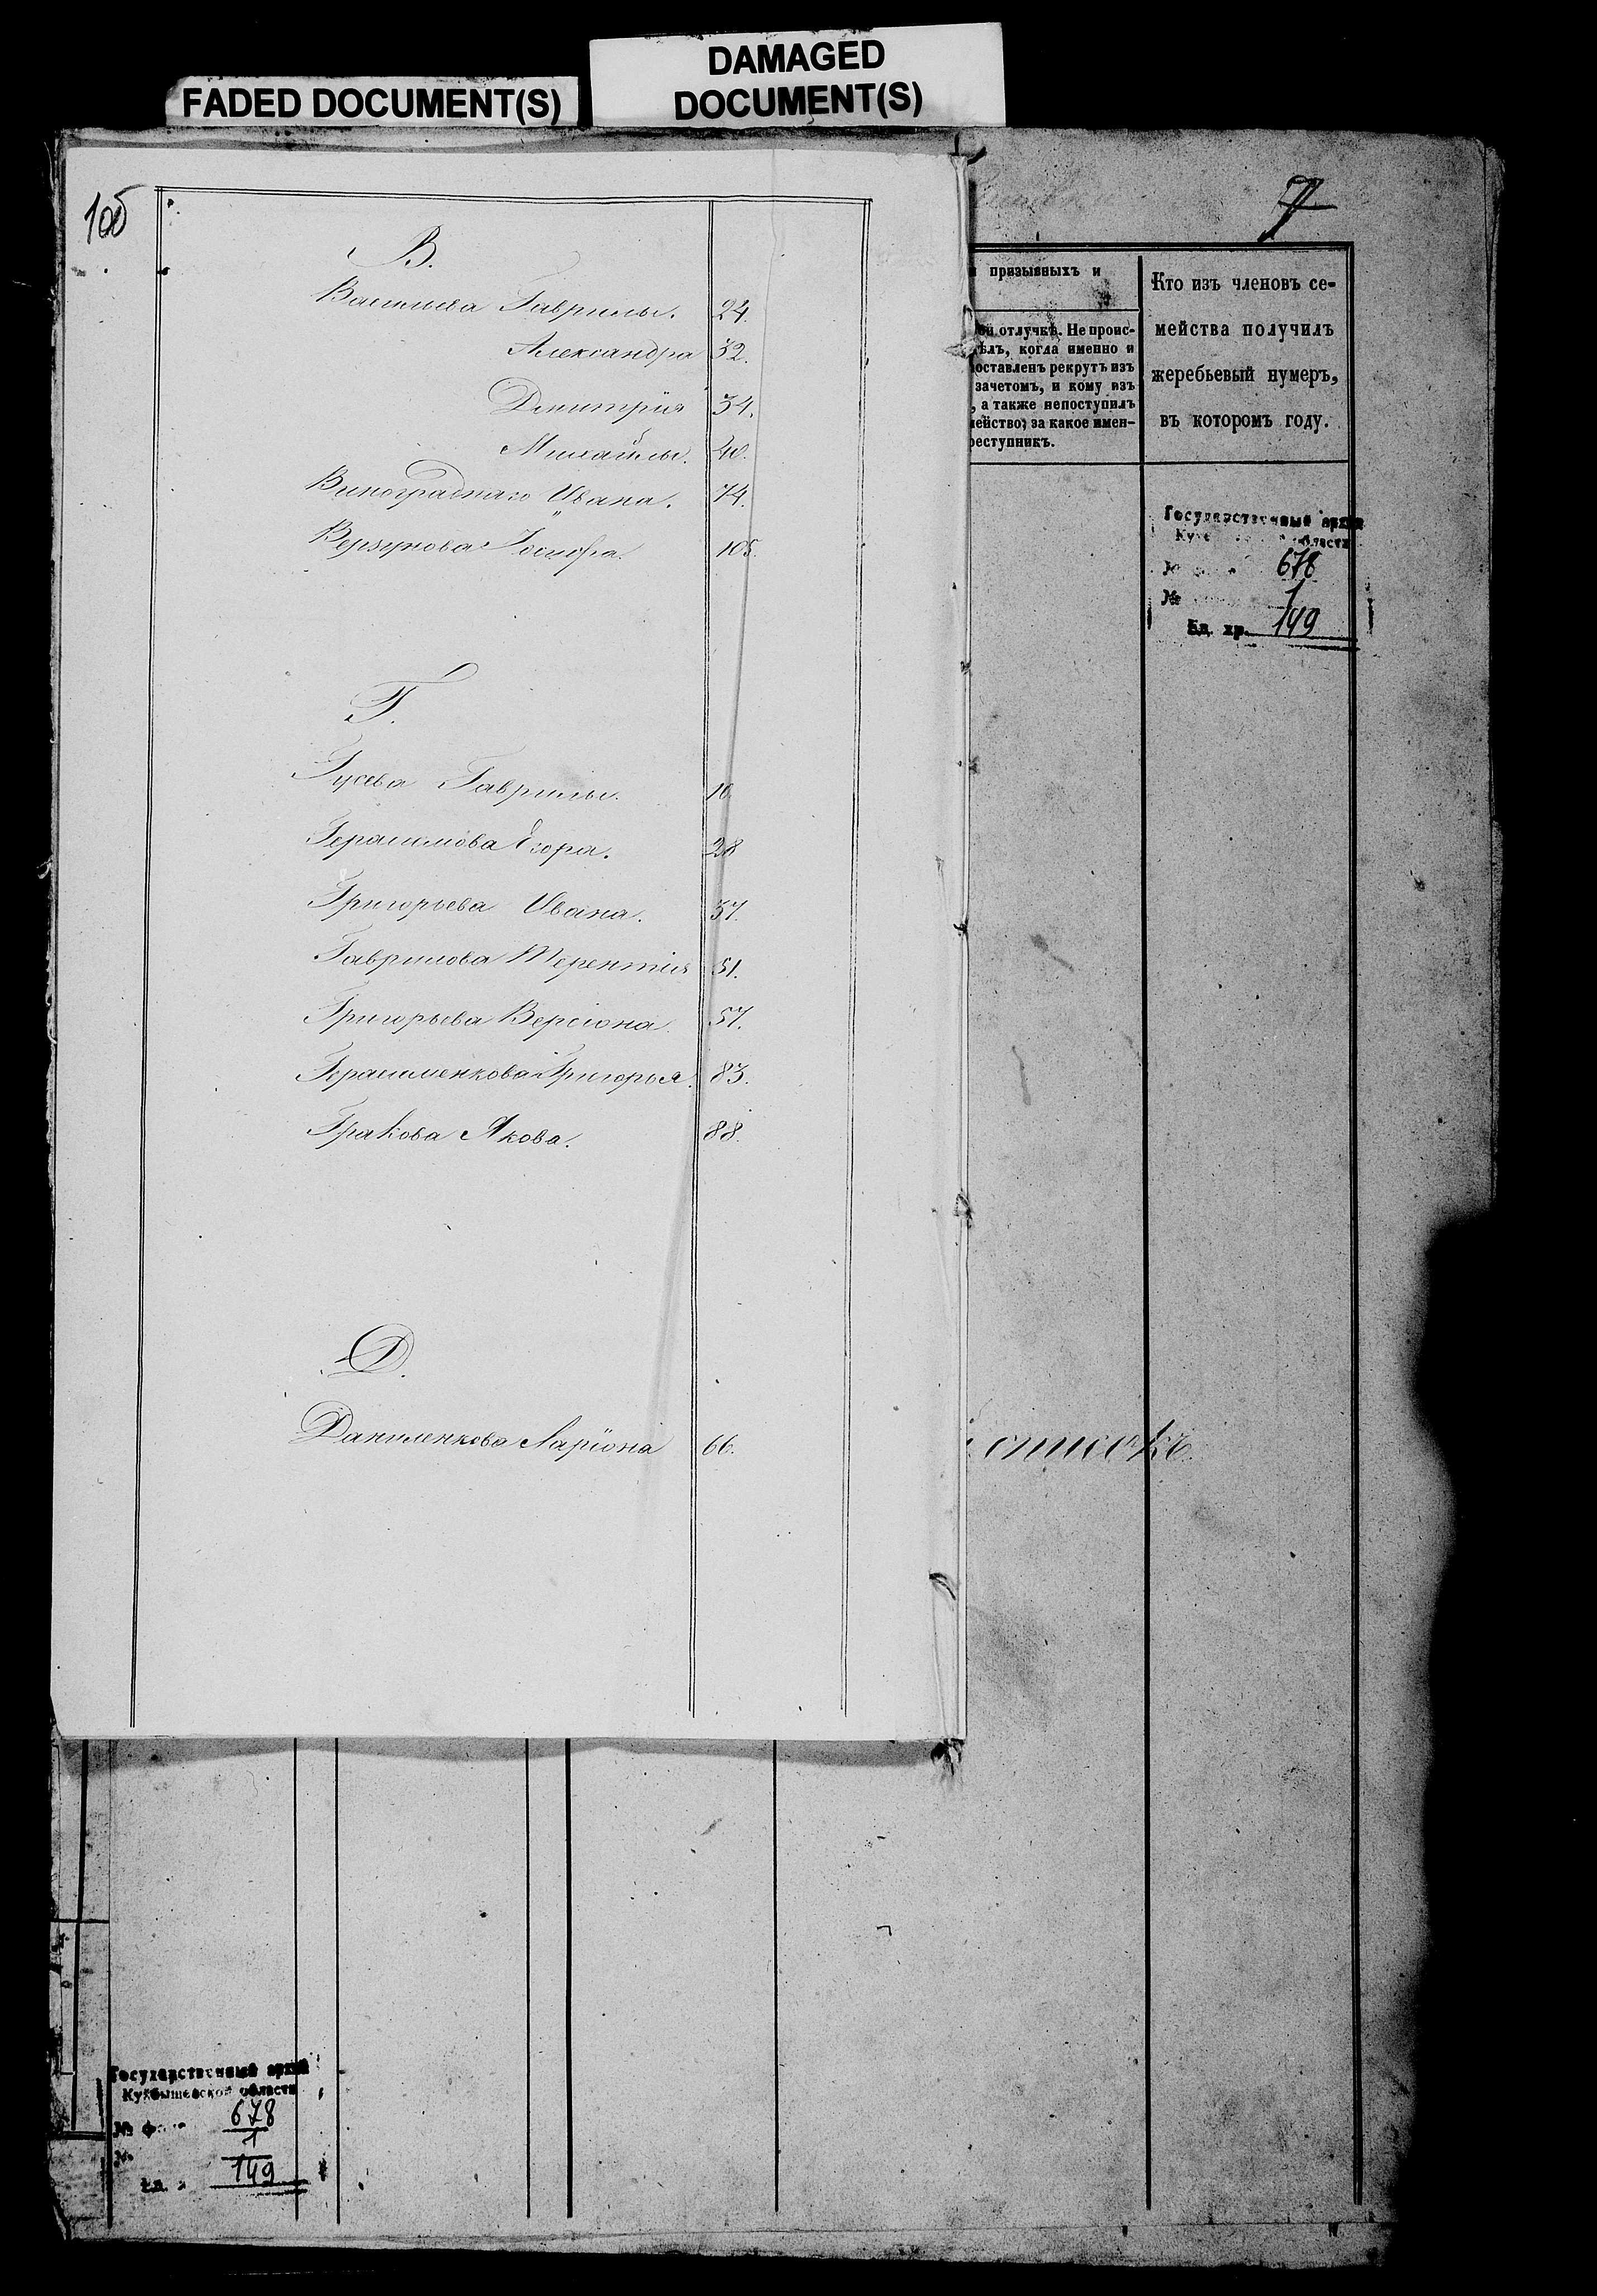 FADED DOCUMENT(S)
DAMAGED
DOCUMENT(S)
В.
Васильева Гаврилы. 24.
Александра 32.
Дмитрія 34.
Михайлы. 40.
Виноградного Ивана. 74.
Верзунова Іосифа. 105.
Г.
Гусева Гаврилы. 10.
Герасимова Егора. 28
Григорьева Ивана. 37.
Гаврилова Терентія 51.
Григорьева 57.
Григорья. 83.
Гракова Якова. 88.
Д.
Даниленкова Ларіона 66.
призывныхъ и
отлучкѣ. Не проис-
когда именно и
поставленъ рекрутъ изъ
зачетомъ, и кому изъ
, а также непоступилъ
за какое имен-
Кто изъ членовъ се-
мейства получилъ
жеребьевый нумеръ,
въ которомъ году.
Государственный архив
области
678
№ 1
Ед. хр. 149
Государственный архив
Куйбышевской области
№ ф. 678
№ 1
Ед. 149